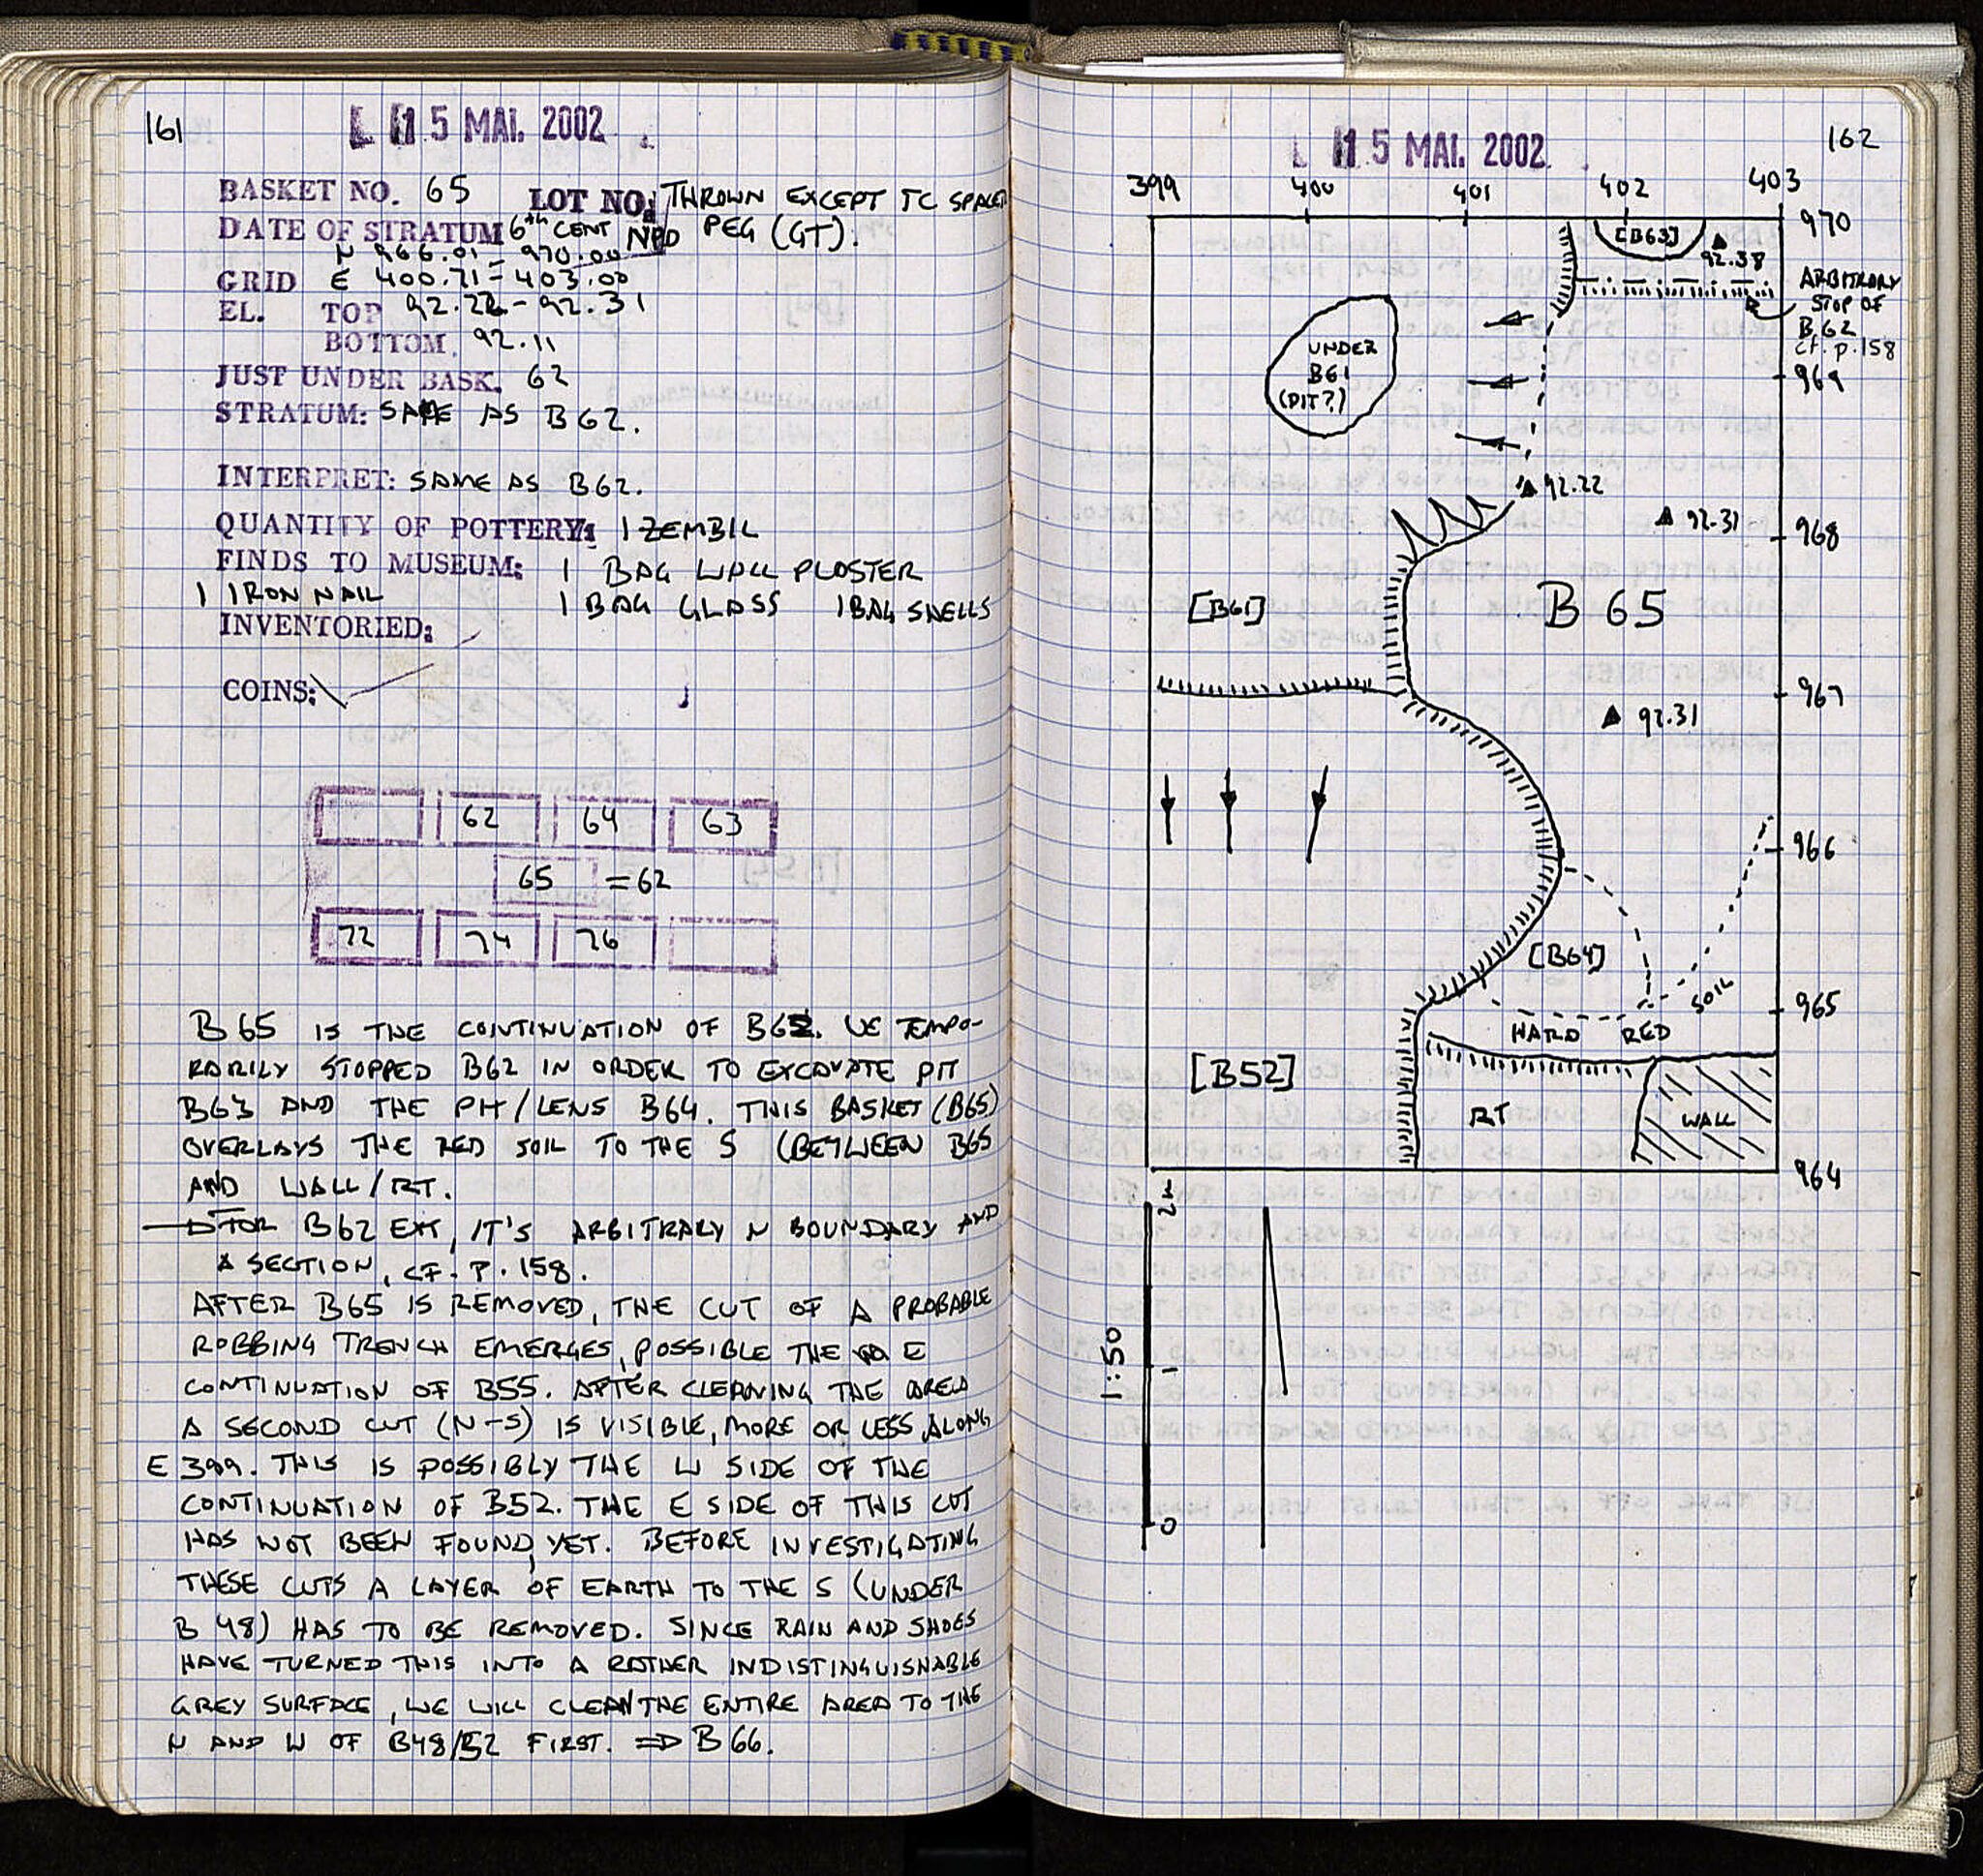 161
15 MAI. 2002
BASKET NO. 65 LOT NO: THROWN EXCEPT TC SPACER
DATE OF STRATUM 6th CENT NPD PEG (GT).
N 966.01 - 970.00
GRID E 400.71 - 403.00
EL. TOP 92.22 - 92.31
BOTTOM. 92.11
JUST UNDER BASK. 62
STRATUM: SAME AS B62.
INTERPRET: SAME AS B62.
QUANTITY OF POTTERY: 1 ZEMBIL
FINDS TO MUSEUM: 1 BAG WALL PLASTER
1 IRON NAIL 1 BAG GLASS 1 BAG SHELLS
INVENTORIED:
COINS:
62 64 63
65 = 62
72 74 76
B 65 IS THE CONTINUATION OF B62. WE TEMPO-
RARILY STOPPED B62 IN ORDER TO EXCAVATE PIT
B63 AND THE PIT/LENS B64. THIS BASKET (B65)
OVERLAYS THE RED SOIL TO THE S (BETWEEN B65
AND WALL/RT.
FOR B62 EXT, IT'S ARBITRARY N BOUNDARY AND
A SECTION, CF. P. 158.
AFTER B65 IS REMOVED, THE CUT OF A PROBABLE
ROBBING TRENCH EMERGES, POSSIBLE THE E
CONTINUATION OF B55. AFTER CLEANING THE AREA
A SECOND CUT (N-S) IS VISIBLE, MORE OR LESS ALONG
E 399. THIS IS POSSIBLY THE W SIDE OF THE
CONTINUATION OF B52. THE E SIDE OF THIS CUT
HAS NOT BEEN FOUND YET. BEFORE INVESTIGATING
THESE CUTS A LAYER OF EARTH TO THE S (UNDER
B 48) HAS TO BE REMOVED. SINCE RAIN AND SHOES
HAVE TURNED THIS INTO A RATHER INDISTINGUISHABLE
GREY SURFACE, WE WILL CLEAN THE ENTIRE AREA TO THE
N AND W OF B48/52 FIRST. ⇒ B 66.
15 MAI. 2002
162
399 400 401 402 403
970
[B63]
92.38
ARBITRARY
STOP OF
B62
cf. p.158
UNDER
B61
(PIT?)
969
92.22
92.31
968
[B61]
B 65
967
92.31
966
[B64]
SOIL
965
HARD RED
[B52]
RT
WALL
964
2
1:50
1
0